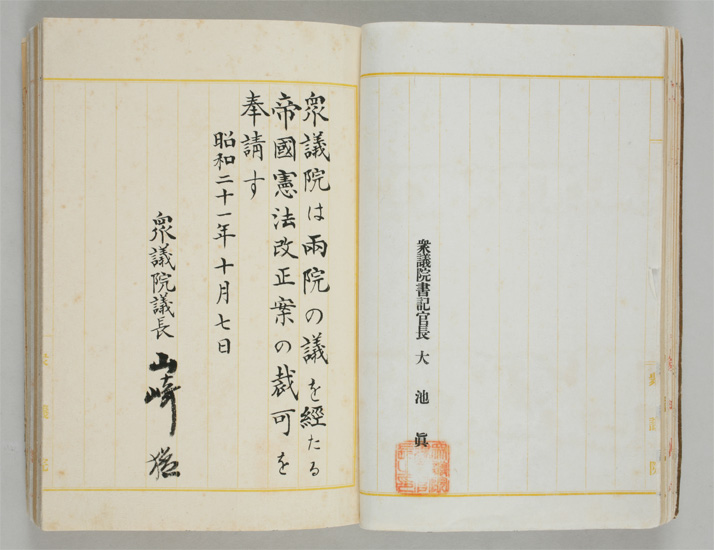 衆議院書記官長　大池　眞
衆議院は兩院の議を經たる
帝國憲法改正案の裁可を
奉請す
昭和二十一年十月七日
衆議院議長　山崎　猛